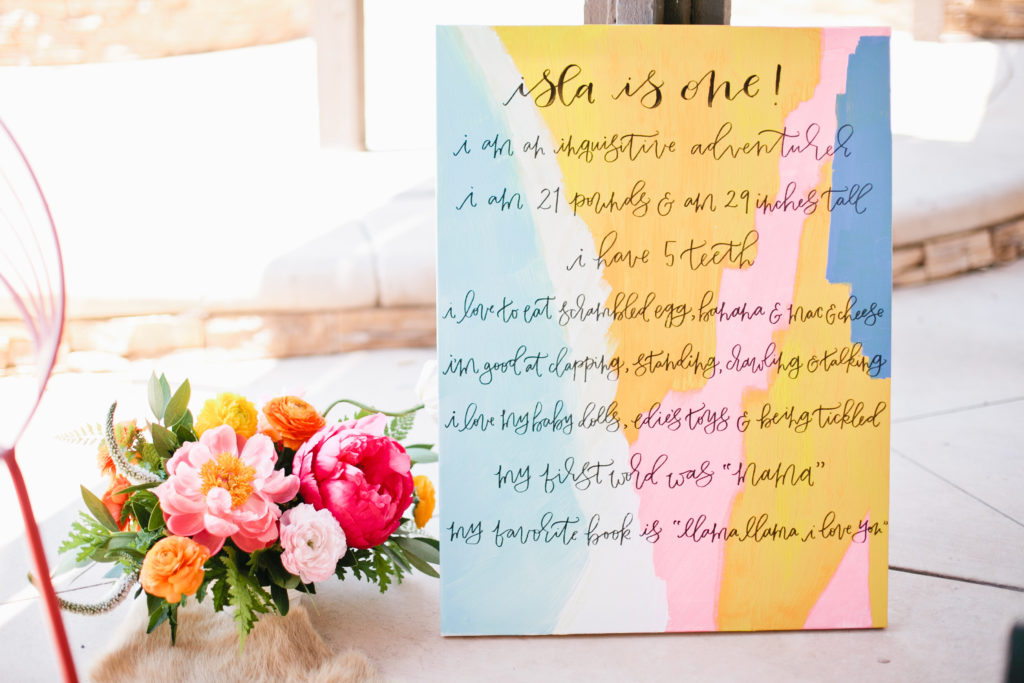 isla is one!
i am an inquisitive adventurer
i am 21 pounds & am 29 inches tall
i have 5 teeth
i love to eat scrambled egg, banana & mac & cheese
i'm good at clapping, standing, crawling & talking
i love my baby dolls, edies toys & being tickled
my first word was "mama"
my favorite book is "llama, llama, i love you"